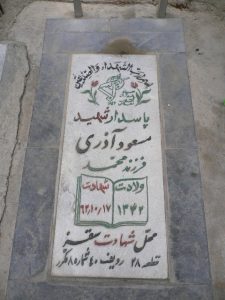 پاسدار شهید
مسعود آذری
فرزند محمد
ولادت شهادت
۱۳۴۲ ۶۲٫۱۰٫۱۷
محل شهادت سقز
قطعه ۲۸ ردیف ۴۰ شماره ۸ مکرر